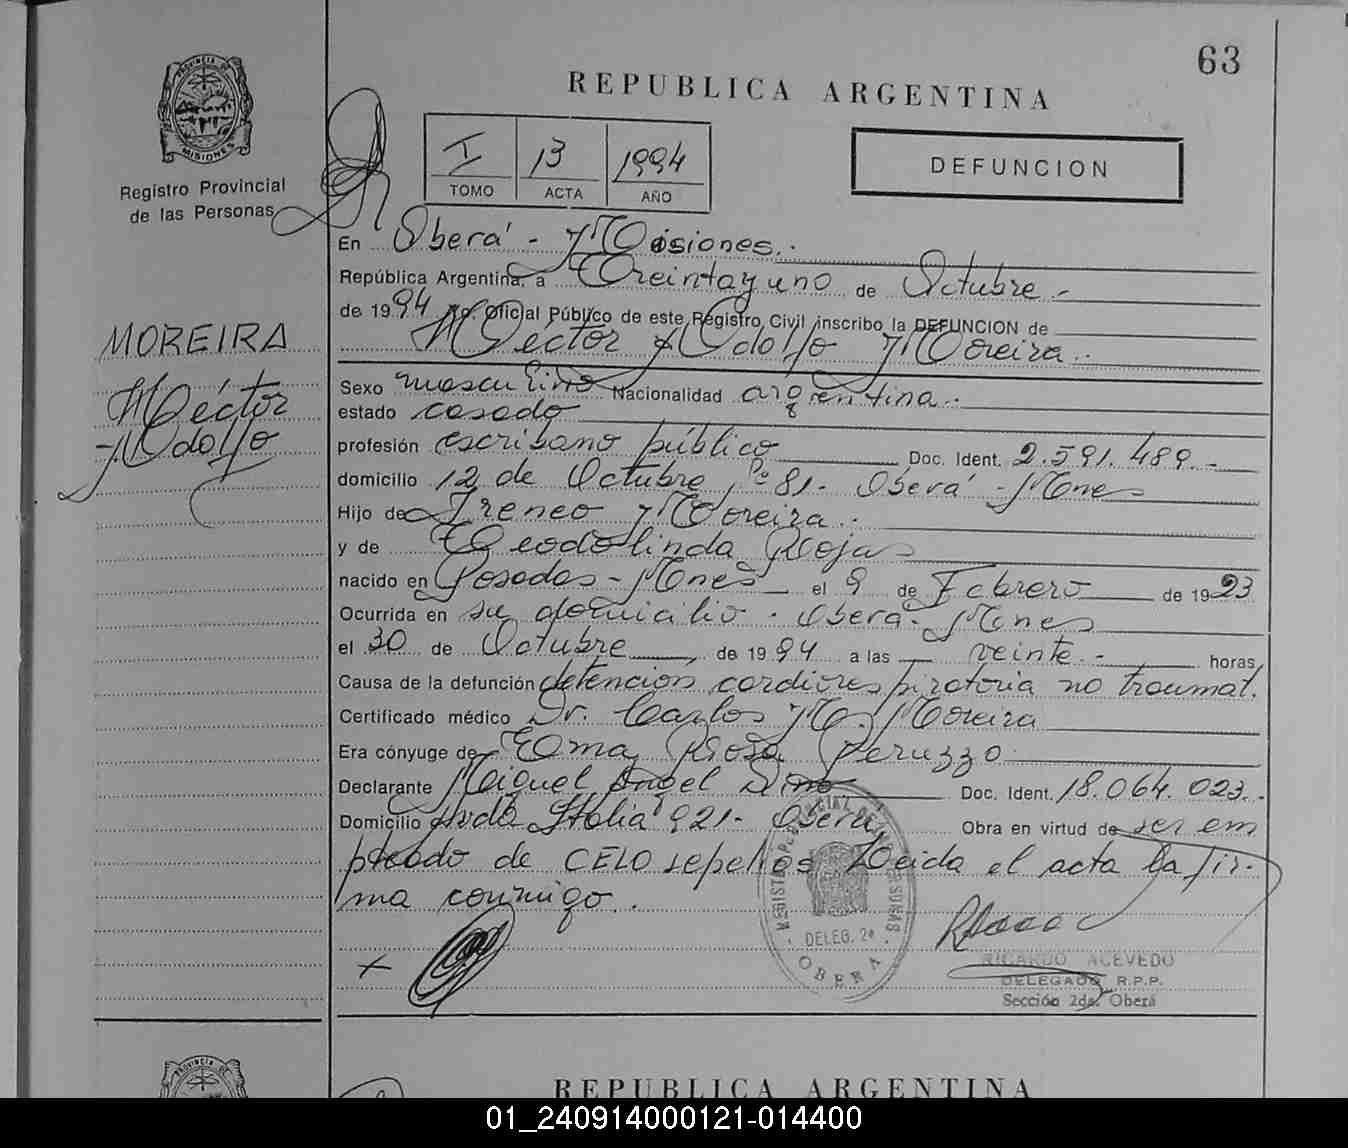 63
REPUBLICA ARGENTINA
PROVINCIA DE
MISIONES
Registro Provincial
de las Personas
I 13 1994
TOMO ACTA AÑO
DEFUNCION
MOREIRA
Héctor
Adolfo
En Oberá - Misiones.
República Argentina, a Treinta y uno de Octubre -
de 1994 Yo. Oficial Público de este Registro Civil inscribo la DEFUNCION de
Héctor Adolfo Moreira.
Sexo masculino Nacionalidad argentina.
estado casado
profesión escribano público Doc. Ident. 2.591.489.-
domicilio 12 de Octubre, Nº 81- Oberá - Mnes
Hijo de Ireneo Moreira.
y de Teodolinda Rojas
nacido en Posadas - Mnes el 9 de Febrero de 1923
Ocurrida en su domicilio. Oberá- Mnes
el 30 de Octubre, de 1994 a las veinte.- horas
Causa de la defunción detención cardiorespiratoria no traumat.
Certificado médico Dr. Carlos H. Moreira
Era cónyuge de Elma Rosa Peruzzo
Declarante Miguel Angel Doc. Ident. 18.064.023.-
Domicilio Avda Italia 921- Oberá, Obra en virtud de ser em
pleado de CELO sepelios Leída el acta la fir-
ma conmigo.
DELEG. 2ª
OBERA
RICARDO ACEVEDO
DELEGADO R.P.P.
Sección 2da. Oberá
PROVINCIA DE
REPUBLICA ARGENTINA
01_240914000121-014400